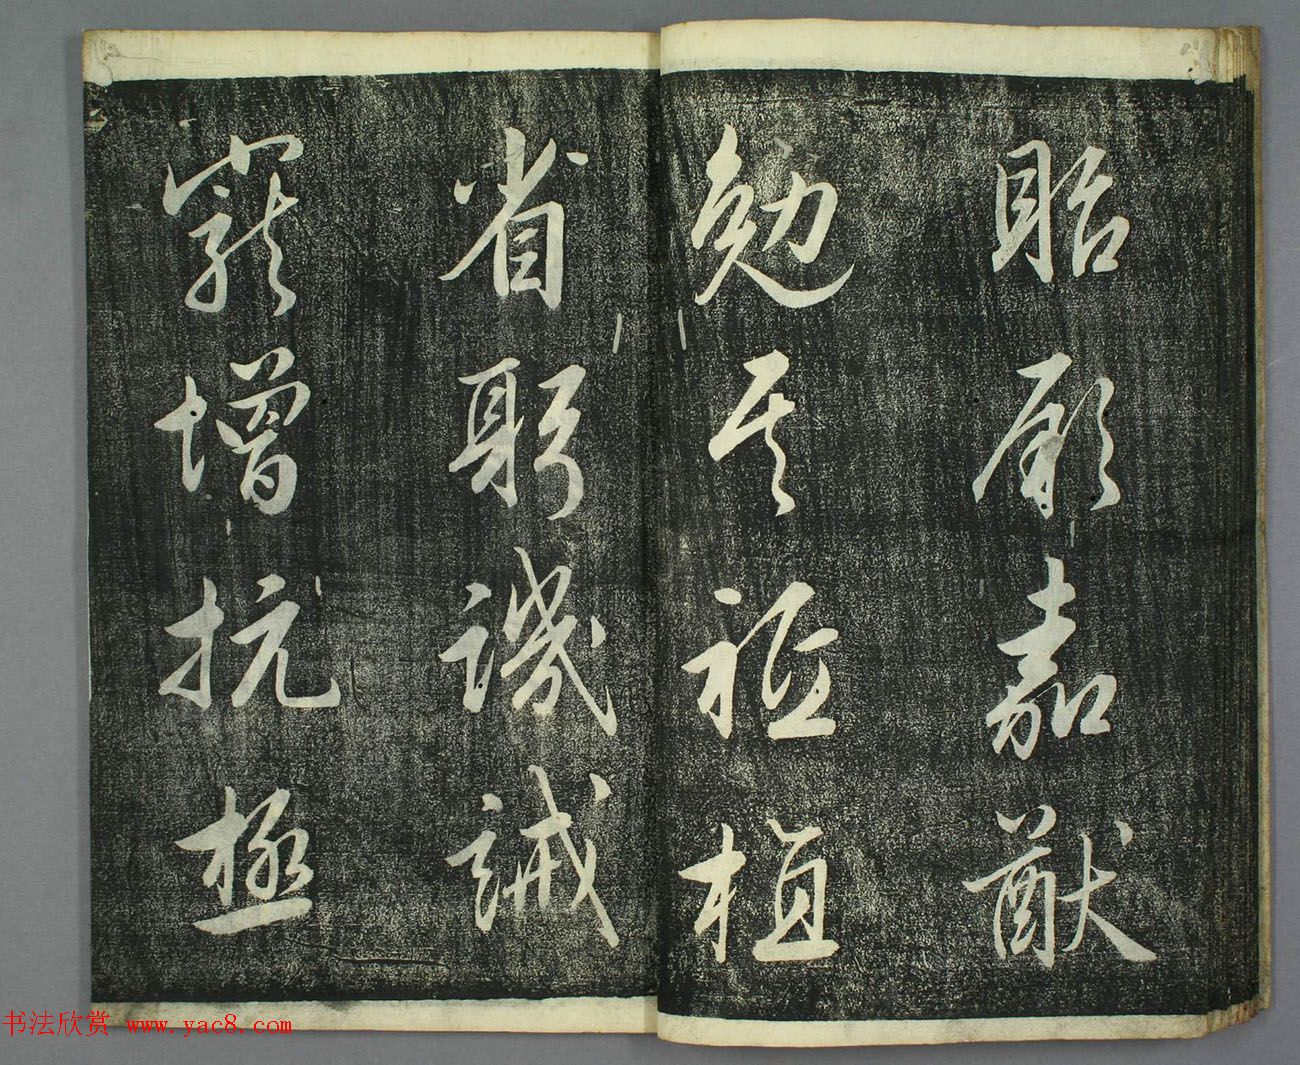 貽厥嘉猷
勉其祗植
省躬譏誡
寵增抗極
书法欣赏 www.yac8.com